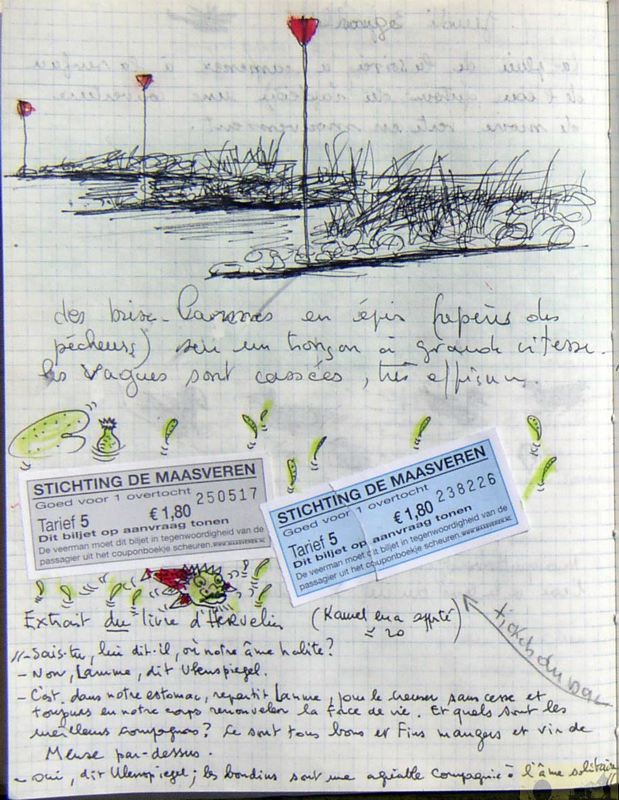 des brise-lammes en épis (repérés des
pêcheurs) sur un tronçon à grande vitesse.
les vagues sont cassées, très efficace.
STICHTING DE MAASVEREN
Goed voor 1 overtocht
250517
Tarief 5 € 1,80
Dit biljet op aanvraag tonen
De veerman moet dit biljet in tegenwoordigheid van de
passagier uit het couponboekje scheuren. www.maasveren.nl
STICHTING DE MAASVEREN
Goed voor 1 overtocht
238226
Tarief 5 € 1,80
Dit biljet op aanvraag tonen
De veerman moet dit biljet in tegenwoordigheid van de
passagier uit het couponboekje scheuren. www.maasveren.nl
Extrait du livre d'Hervelin (Kamel en a
20
tickets du bac
"- Sais-tu, lui dit-il, où notre âme habite?
- Non, Lamme, dit Ulenspiegel.
- C'est dans notre estomac, repartit Lamme, pour le creuser sans cesse et
toujours en notre corps renouveler la force de vie. Et quels sont les
meilleurs compagnons? Ce sont tous bons et fins mangers et vin de
Meuse par-dessus.
- oui, dit Ulenspiegel; les boudins sont une agréable compagnie à l'âme solitaire"